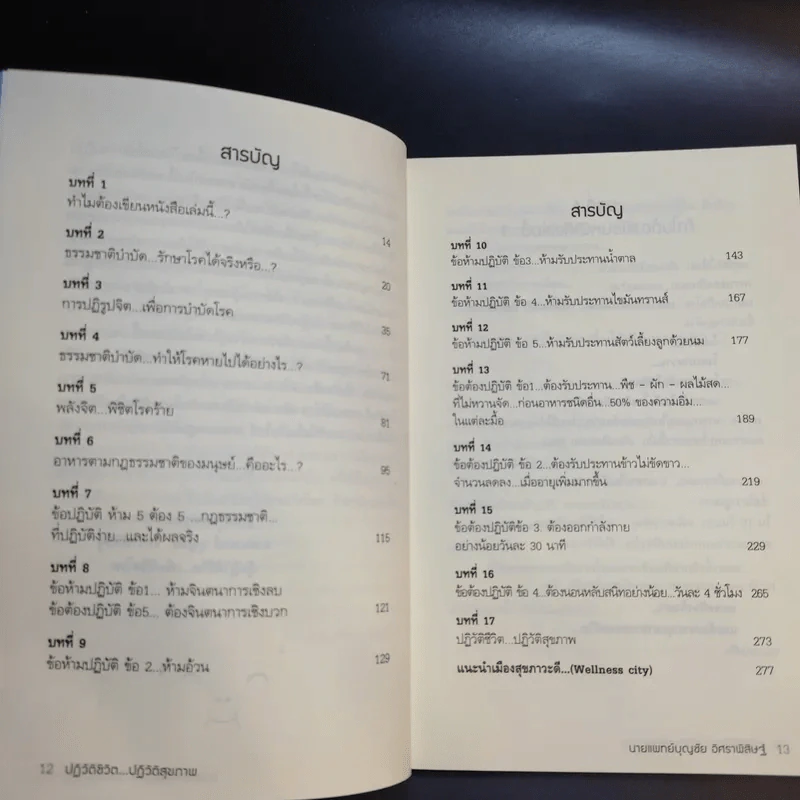 สารบัญ
บทที่ 1
ทำไมต้องเขียนหนังสือเล่มนี้...?
14
บทที่ 2
ธรรมชาติบำบัด...รักษาโรคได้จริงหรือ...?
20
บทที่ 3
การปฏิรูปจิต...เพื่อการบำบัดโรค
35
บทที่ 4
ธรรมชาติบำบัด...ทำให้โรคหายไปได้อย่างไร...?
71
บทที่ 5
พลังจิต...พิชิตโรคร้าย
81
บทที่ 6
อาหารตามกฎธรรมชาติของมนุษย์...คืออะไร...?
95
บทที่ 7
ข้อปฏิบัติ ห้าม 5 ต้อง 5 ...กฎธรรมชาติ...
ที่ปฏิบัติง่าย...และได้ผลจริง 115
บทที่ 8
ข้อห้ามปฏิบัติ ข้อ1... ห้ามจินตนาการเชิงลบ
ข้อต้องปฏิบัติ ข้อ5... ต้องจินตนาการเชิงบวก 121
บทที่ 9
ข้อห้ามปฏิบัติ ข้อ 2...ห้ามอ้วน 129
12 ปฏิวัติชีวิต...ปฏิวัติสุขภาพ
สารบัญ
บทที่ 10
ข้อห้ามปฏิบัติ ข้อ3...ห้ามรับประทานน้ำตาล 143
บทที่ 11
ข้อห้ามปฏิบัติ ข้อ 4...ห้ามรับประทานไขมันทรานส์ 167
บทที่ 12
ข้อห้ามปฏิบัติ ข้อ 5...ห้ามรับประทานสัตว์เลี้ยงลูกด้วยนม 177
บทที่ 13
ข้อต้องปฏิบัติ ข้อ1...ต้องรับประทาน...พืช - ผัก - ผลไม้สด...
ที่ไม่หวานจัด...ก่อนอาหารชนิดอื่น...50% ของความอิ่ม...
ในแต่ละมื้อ 189
บทที่ 14
ข้อต้องปฏิบัติ ข้อ 2...ต้องรับประทานข้าวไม่ขัดขาว...
จำนวนลดลง...เมื่ออายุเพิ่มมากขึ้น 219
บทที่ 15
ข้อต้องปฏิบัติข้อ 3. ต้องออกกำลังกาย
อย่างน้อยวันละ 30 นาที 229
บทที่ 16
ข้อต้องปฏิบัติ ข้อ 4...ต้องนอนหลับสนิทอย่างน้อย...วันละ 4 ชั่วโมง 265
บทที่ 17
ปฏิวัติชีวิต...ปฏิวัติสุขภาพ 273
แนะนำเมืองสุขภาวะดี...(Wellness city) 277
นายแพทย์บุญชัย อิศราพิสิษฐ์ 13